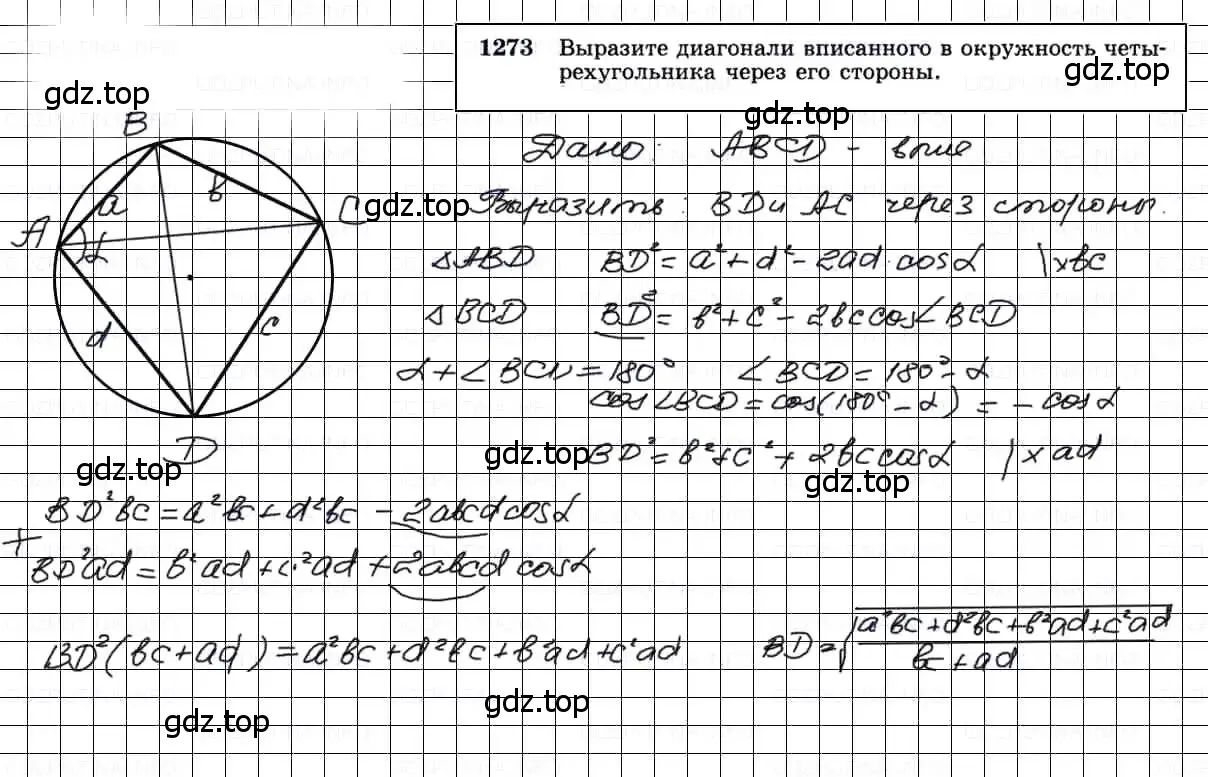 1273 Выразите диагонали вписанного в окружность четы-
рехугольника через его стороны.
gdz.top
gdz.top
gdz.top
B
Дано: ABCD - впис
a
в
C
gdz.top
Выразить: BD и AC через стороны.
A
α
△ABD BD² = a² + d² - 2ad·cosα |×вc
△BCD BD² = в² + c² - 2вc cos∠BCD
d
c
α + ∠BCD = 180° ∠BCD = 180° - α
cos∠BCD = cos(180° - α) = - cosα
D
gdz.top
gdz.top
BD² = в² + c² + 2вc cosα |× ad
gdz.top
BD²вc = a²вc + d²вc - 2aвcd cosα
+
BD²ad = в²ad + c²ad + 2aвcd cosα
BD²(вc + ad) = a²вc + d²вc + в²ad + c²ad BD = √((a²вc + d²вc + в²ad + c²ad)/(вc + ad))
gdz.top
gdz.top